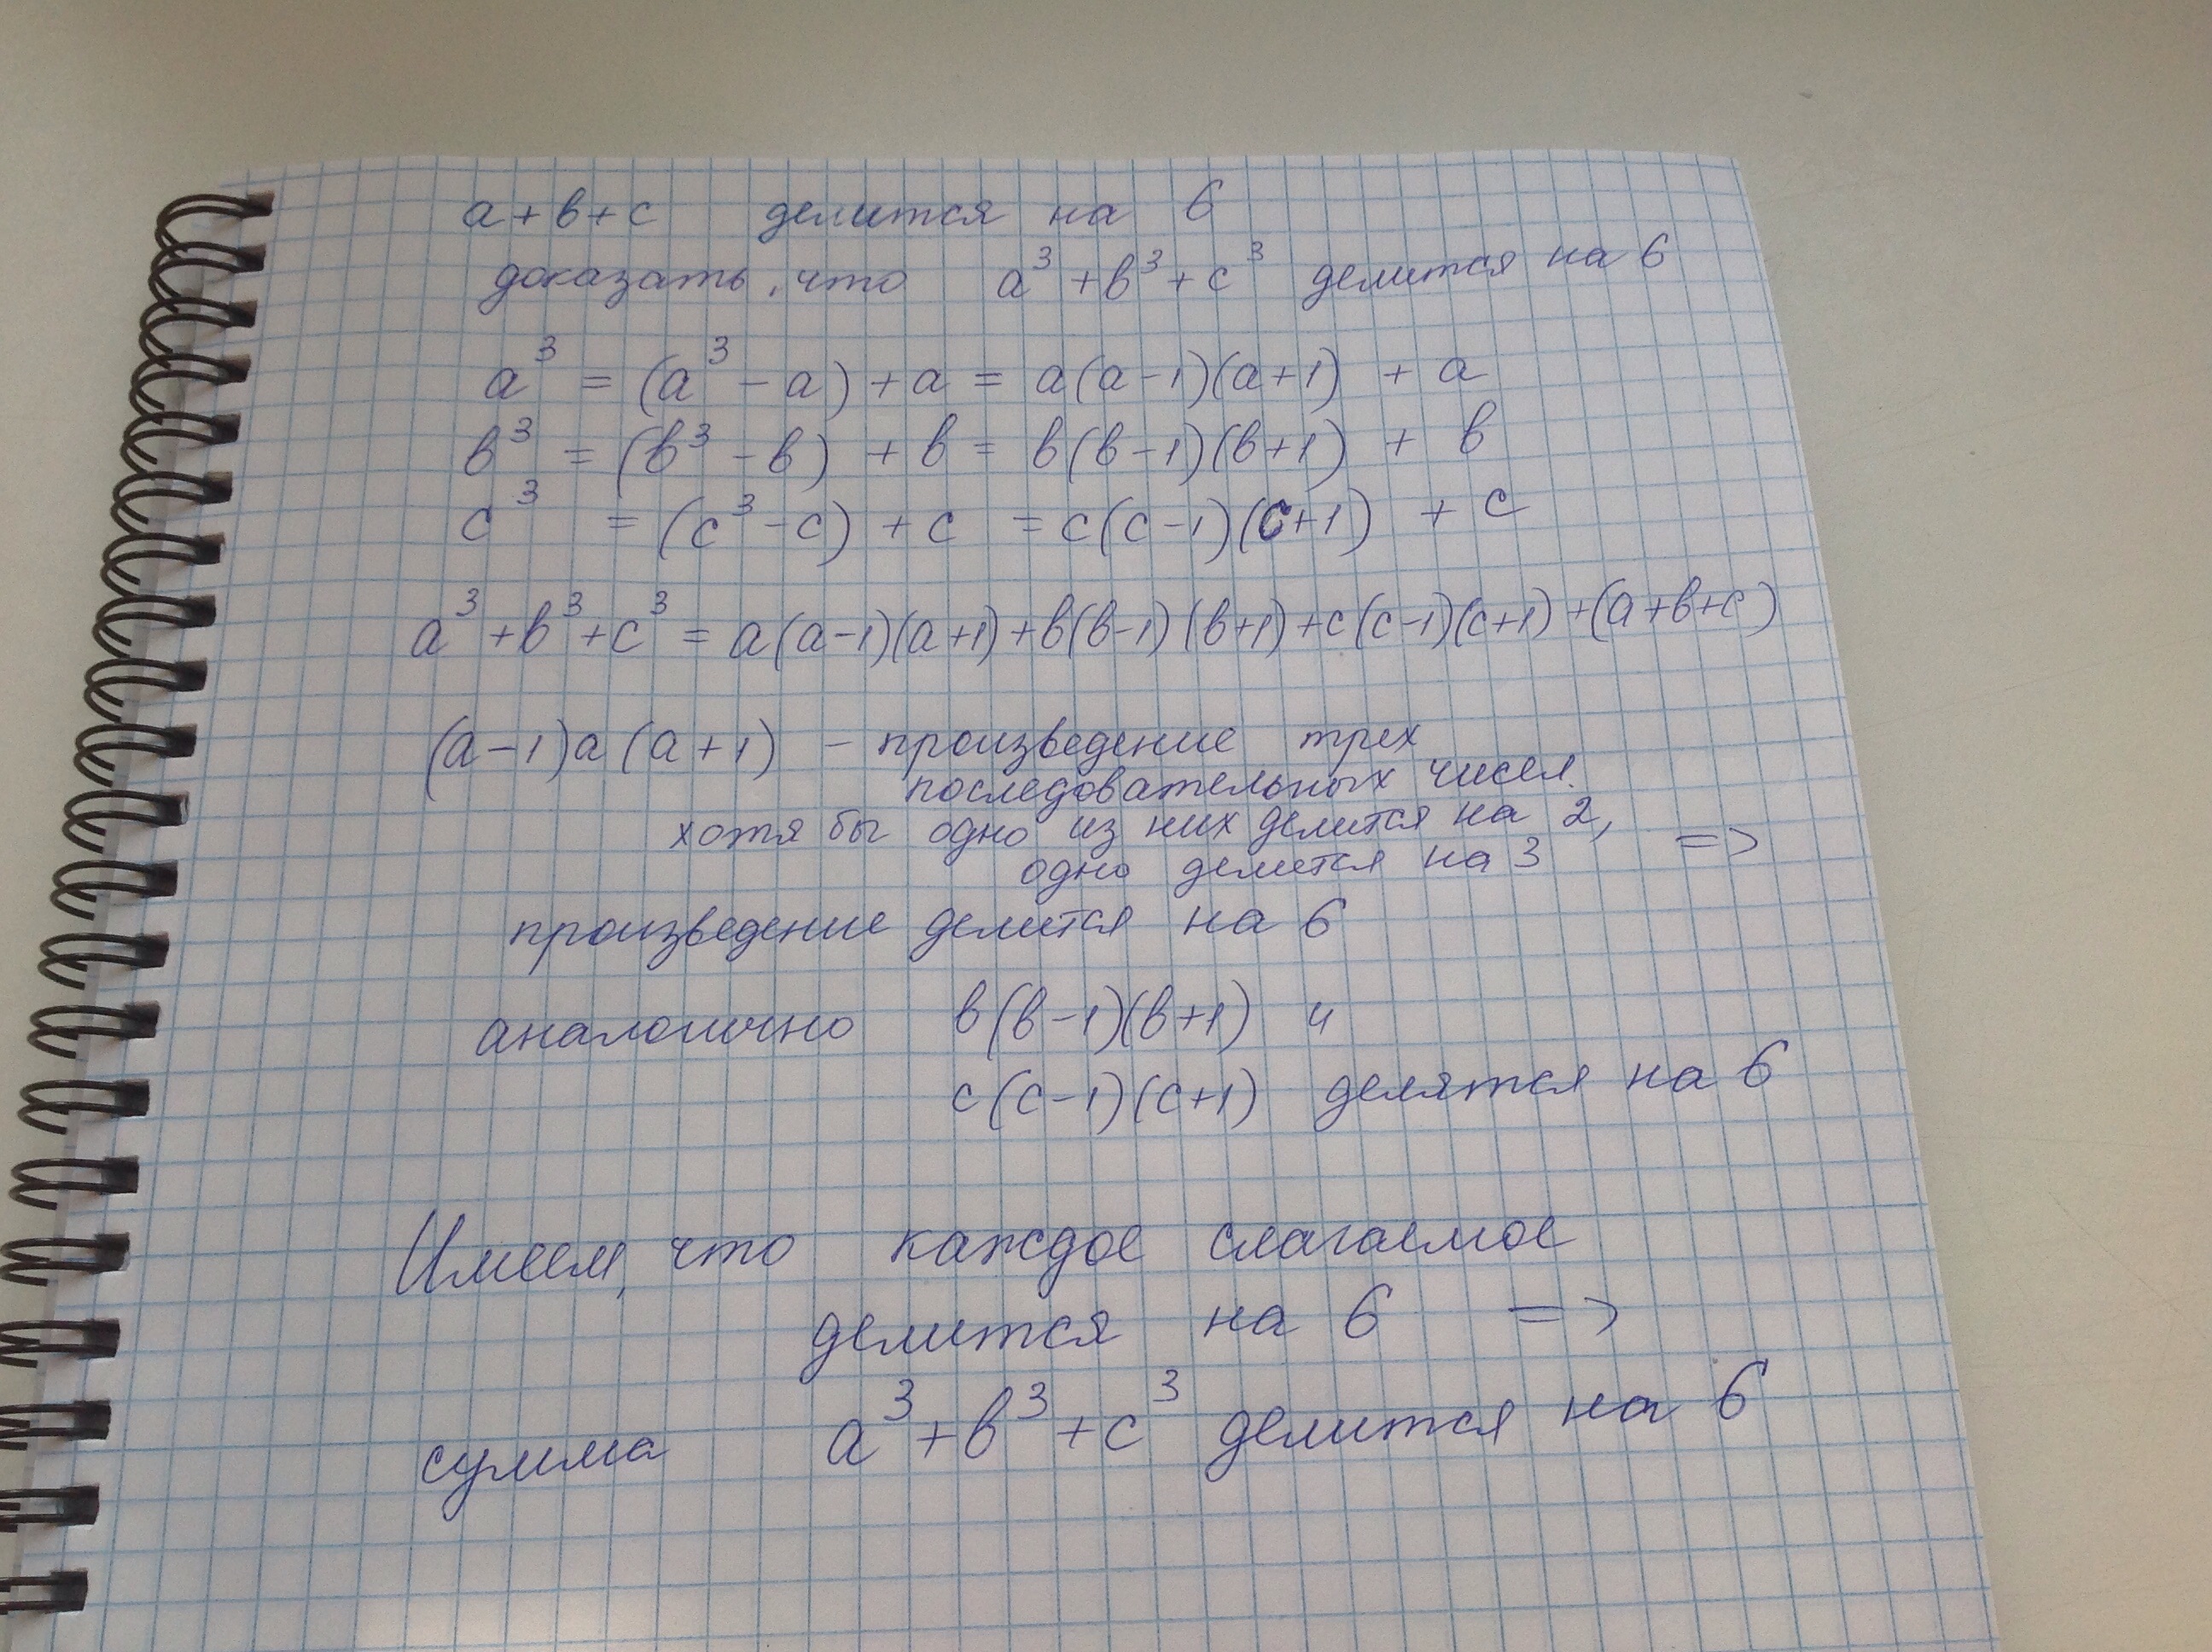 a+в+c делится на 6
доказать, что a³+в³+c³ делится на 6
a³ = (a³-a)+a = a(a-1)(a+1) + a
в³ = (в³-в) + в = в(в-1)(в+1) + в
c³ = (c³-c) + c = c(c-1)(c+1) + c
a³+в³+c³ = a(a-1)(a+1)+в(в-1)(в+1)+c(c-1)(c+1)+(a+в+c)
(a-1)a(a+1) - произведение трех
последовательных чисел.
хотя бы одно из них делится на 2, =>
одно делится на 3
произведение делится на 6
аналогично в(в-1)(в+1) и
c(c-1)(c+1) делятся на 6
Имеем, что каждое слагаемое
делится на 6 =>
сумма a³+в³+c³ делится на 6